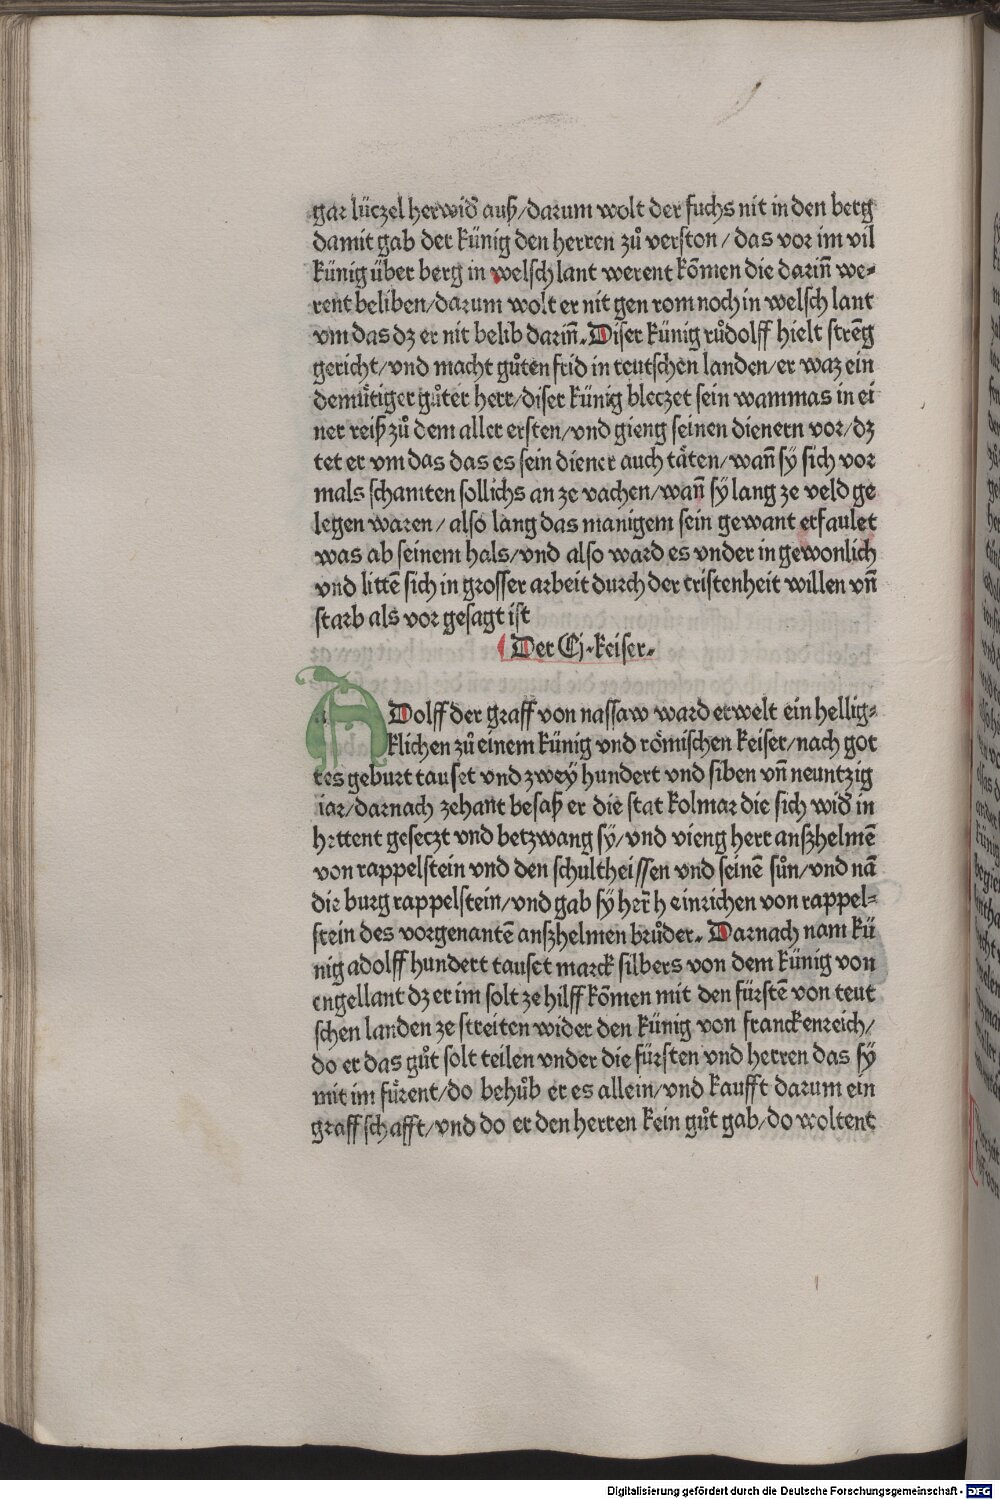 gar lüczel herwid᷑ auß/darum wolt der fuchs nit in den berg
damit gab der künig den herren zů verston/das vor im vil
künig über berg in welsch lant werent kōmen die darin̄ we⸗
rent beliben/darum wolt er nit gen rom noch in welsch lant
vm das dz er nit belib darin̄. Diser künig růdolff hielt strēg
gericht/vnd macht gůten frid in teutschen landen/er waz ein
demuͤtiger gůter herr/diser künig bleczet sein wammas in ei
ner reiß zů dem aller ersten/vnd gieng seinen dienern vor/dz
tet er vm das das es sein diener auch taͤten/wan̄ sÿ sich vor
mals schamten sollichs an ze vachen/wan̄ sÿ lang ze veld ge
legen waren/also lang das manigem sein gewant erfaulet
was ab seinem hals/vnd also ward es vnder in gewonlich
vnd littē sich in grosser arbeit durch der cristenheit willen vn̄
starb als vor gesagt ist
Der Cj.keiser.
ADolff der graff von nassaw ward erwelt ein hellig⸗
klichen zů einem künig vnd roͤmischen keiser/nach got
tes geburt tauset vnd zweÿ hundert vnd siben vn̄ neuntzig
iar/darnach zehant besaß er die stat kolmar die sich wid᷑ in
hettent geseczt vnd betzwang sÿ/vnd vieng herr anßhelmē
von rappelstein vnd den schultheissen vnd seinē sůn/vnd nā
die burg rappelstein/vnd gab sÿ herr̄ heinrichen von rappel⸗
stein des vorgenantē anßhelmen brůder. Darnach nam kü
nig adolff hundert tauset marck silbers von dem künig von
engellant dz er im solt ze hilff kōmen mit den fürstē von teut
schen landen ze streiten wider den künig von franckenreich/
do er das gůt solt teilen vnder die fürsten vnd herren das sÿ
mit im fuͤrent/do behůb er es allein/vnd kaufft darum ein
graffschafft/vnd do er den herren kein gůt gab/do woltent
Digitalisierung gefördert durch die Deutsche Forschungsgemeinschaft - DFG